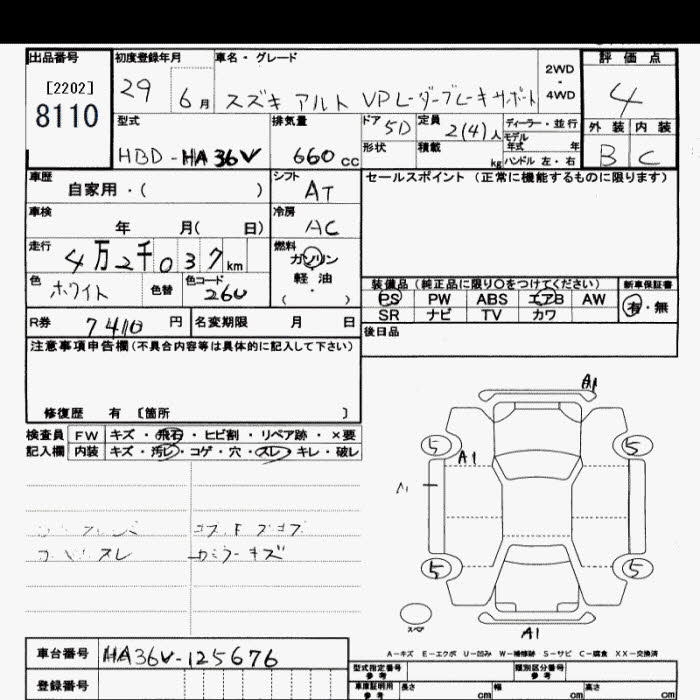 出品番号
[2202]
8110
初度登録年月
29 6月
車名・グレード
スズキ アルト VP レーダーブレーキサポート
2WD・4WD
評価点
4
外装 内装
B C
型式
HBD-HA36V
排気量
660cc
ドア 5D
定員 2(4)人
ディーラー・並行
モデル年式 年
形状
積載 kg
ハンドル 左・右
車歴
自家用・( )
シフト
AT
セールスポイント(正常に機能するものに限ります)
車検
年 月( 日)
冷房
AC
走行
4万2千037km
燃料
ガソリン
軽油
・( )
色
ホワイト
色替
色コード
26U
装備品(純正品に限り〇をつけてください)
新車保証書
PS PW ABS エアB AW
SR ナビ TV カワ
有・無
R券 7410円
名変期限 月 日
後日品
注意事項申告欄(不具合内容等は具体的に記入して下さい)
修復歴 有 〔箇所 〕
検査員記入欄
FW キズ・飛石・ヒビ割・リペア跡・×要
内装 キズ・汚レ・コゲ・穴・スレ・キレ・破レ
スレ
キズ
A1
5 5
A1
A1
5 5
スペア
A1
A-キズ E-エクボ U-凹み W-補修跡 S-サビ C-腐食 XX-交換済
車台番号 HA36V-125676
登録番号
型式指定番号 参考
類別区分番号 参考
車庫証明用 参考 長さ cm 幅 cm 高さ cm